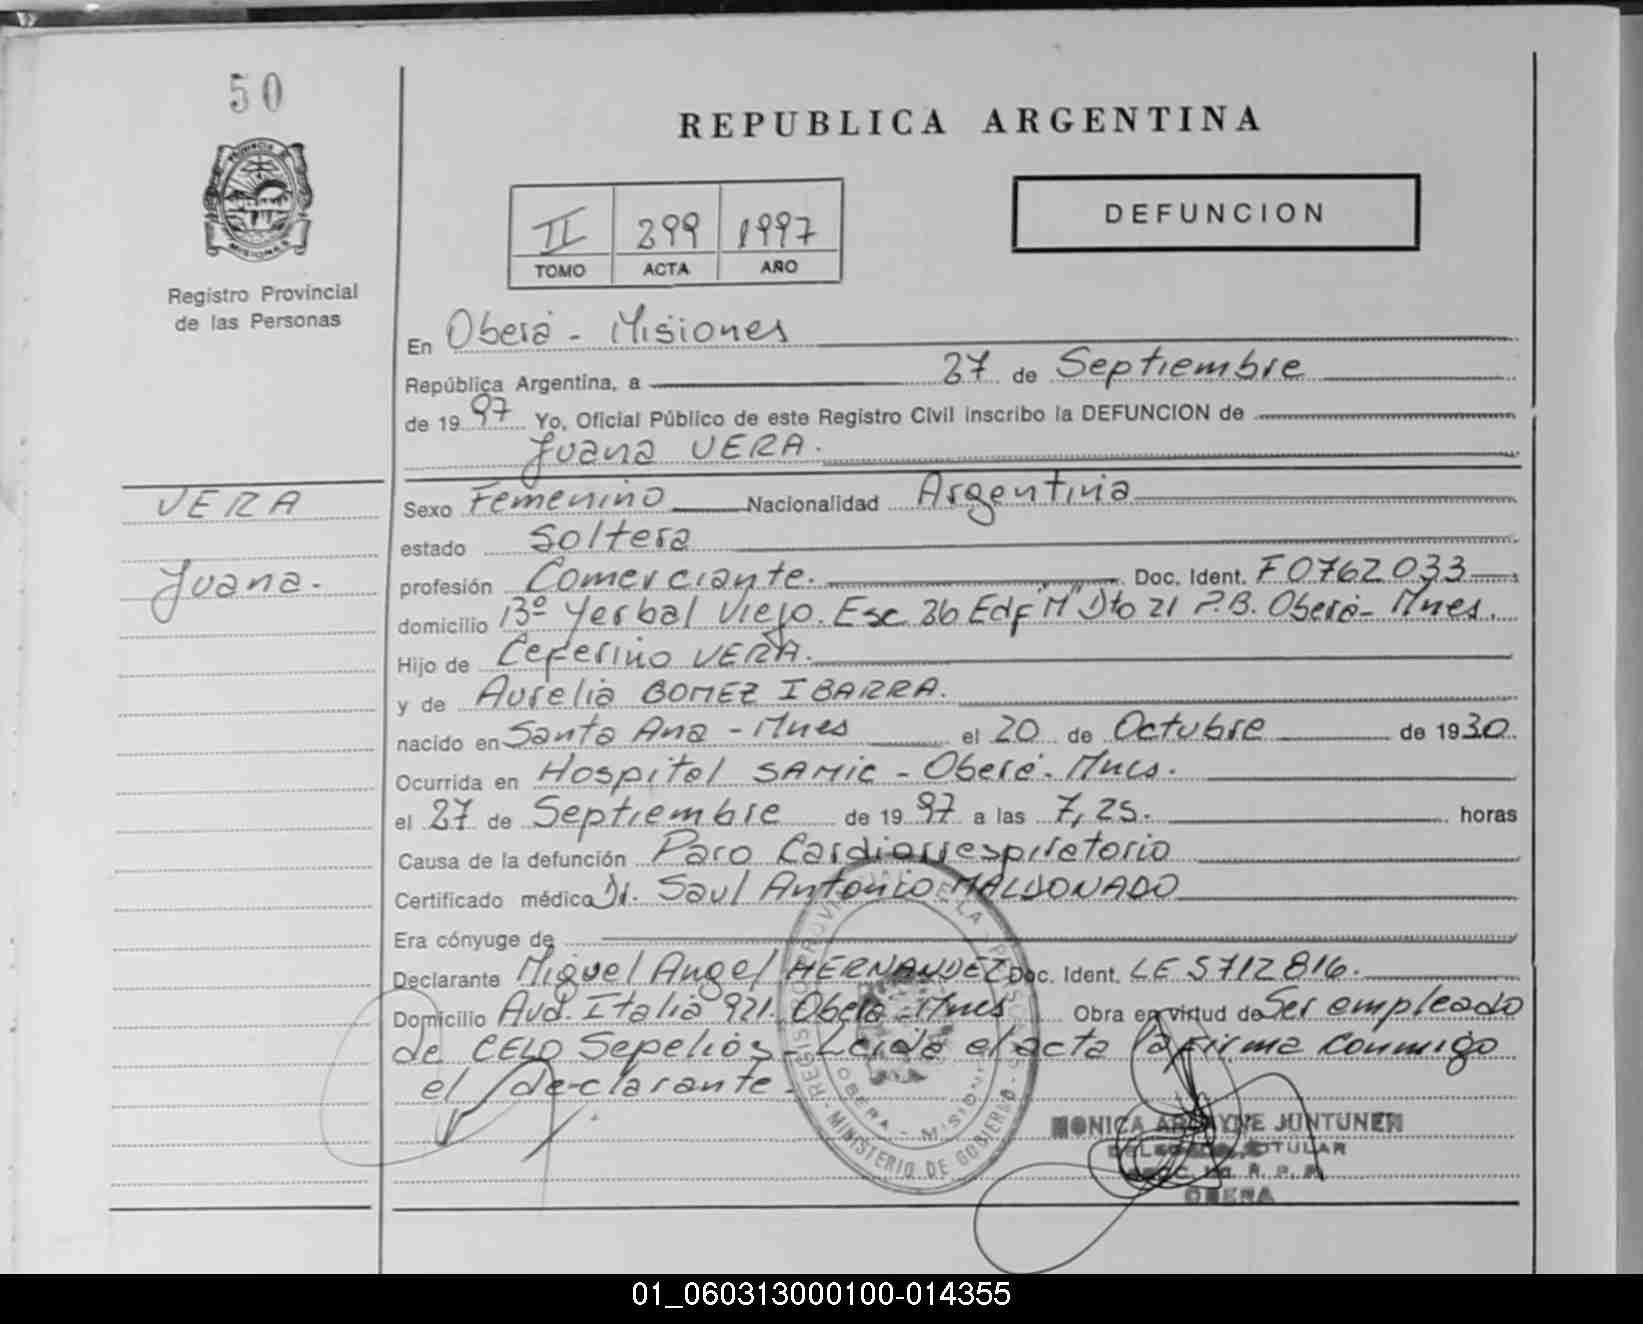 50
REPUBLICA ARGENTINA
PROVINCIA
MISIONES
Registro Provincial
de las Personas
II 299 1997
TOMO ACTA AÑO
DEFUNCION
En Oberá - Misiones
República Argentina, a 27 de Septiembre
de 19 97 Yo, Oficial Público de este Registro Civil inscribo la DEFUNCION de
Juana VERA.
VERA
Juana.
Sexo Femenino Nacionalidad Argentina
estado Soltera
profesión Comerciante. Doc. Ident. F0762033
domicilio Bº Yerbal Viejo. Esc 36 Edf "M" Dto 21 P.B. Oberá - Mnes.
Hijo de Ceferino VERA.
y de Aurelia GOMEZ IBARRA.
nacido en Santa Ana - Mnes el 20 de Octubre de 1930.
Ocurrida en Hospital SAMIC - Oberá - Mnes.
el 27 de Septiembre de 19 97 a las 7,25. horas
Causa de la defunción Paro Cardiorrespiratorio
Certificado médico Dr. Saul Antonio MALDONADO
Era cónyuge de
Declarante Miguel Angel HERNANDEZ Doc. Ident. LE 5712816.
Domicilio Avd. Italia 921. Oberá - Mnes Obra en virtud de Ser empleado
de CELO Sepelios - Leída el acta la firma conmigo
el declarante.
REGISTRO PROVINCIAL DE LAS PERSONAS
OBERA - MISIONES
MINISTERIO DE GOBIERNO
MONICA JUNTUNEN
TITULAR
R. P. P.
OBERA
01_060313000100-014355